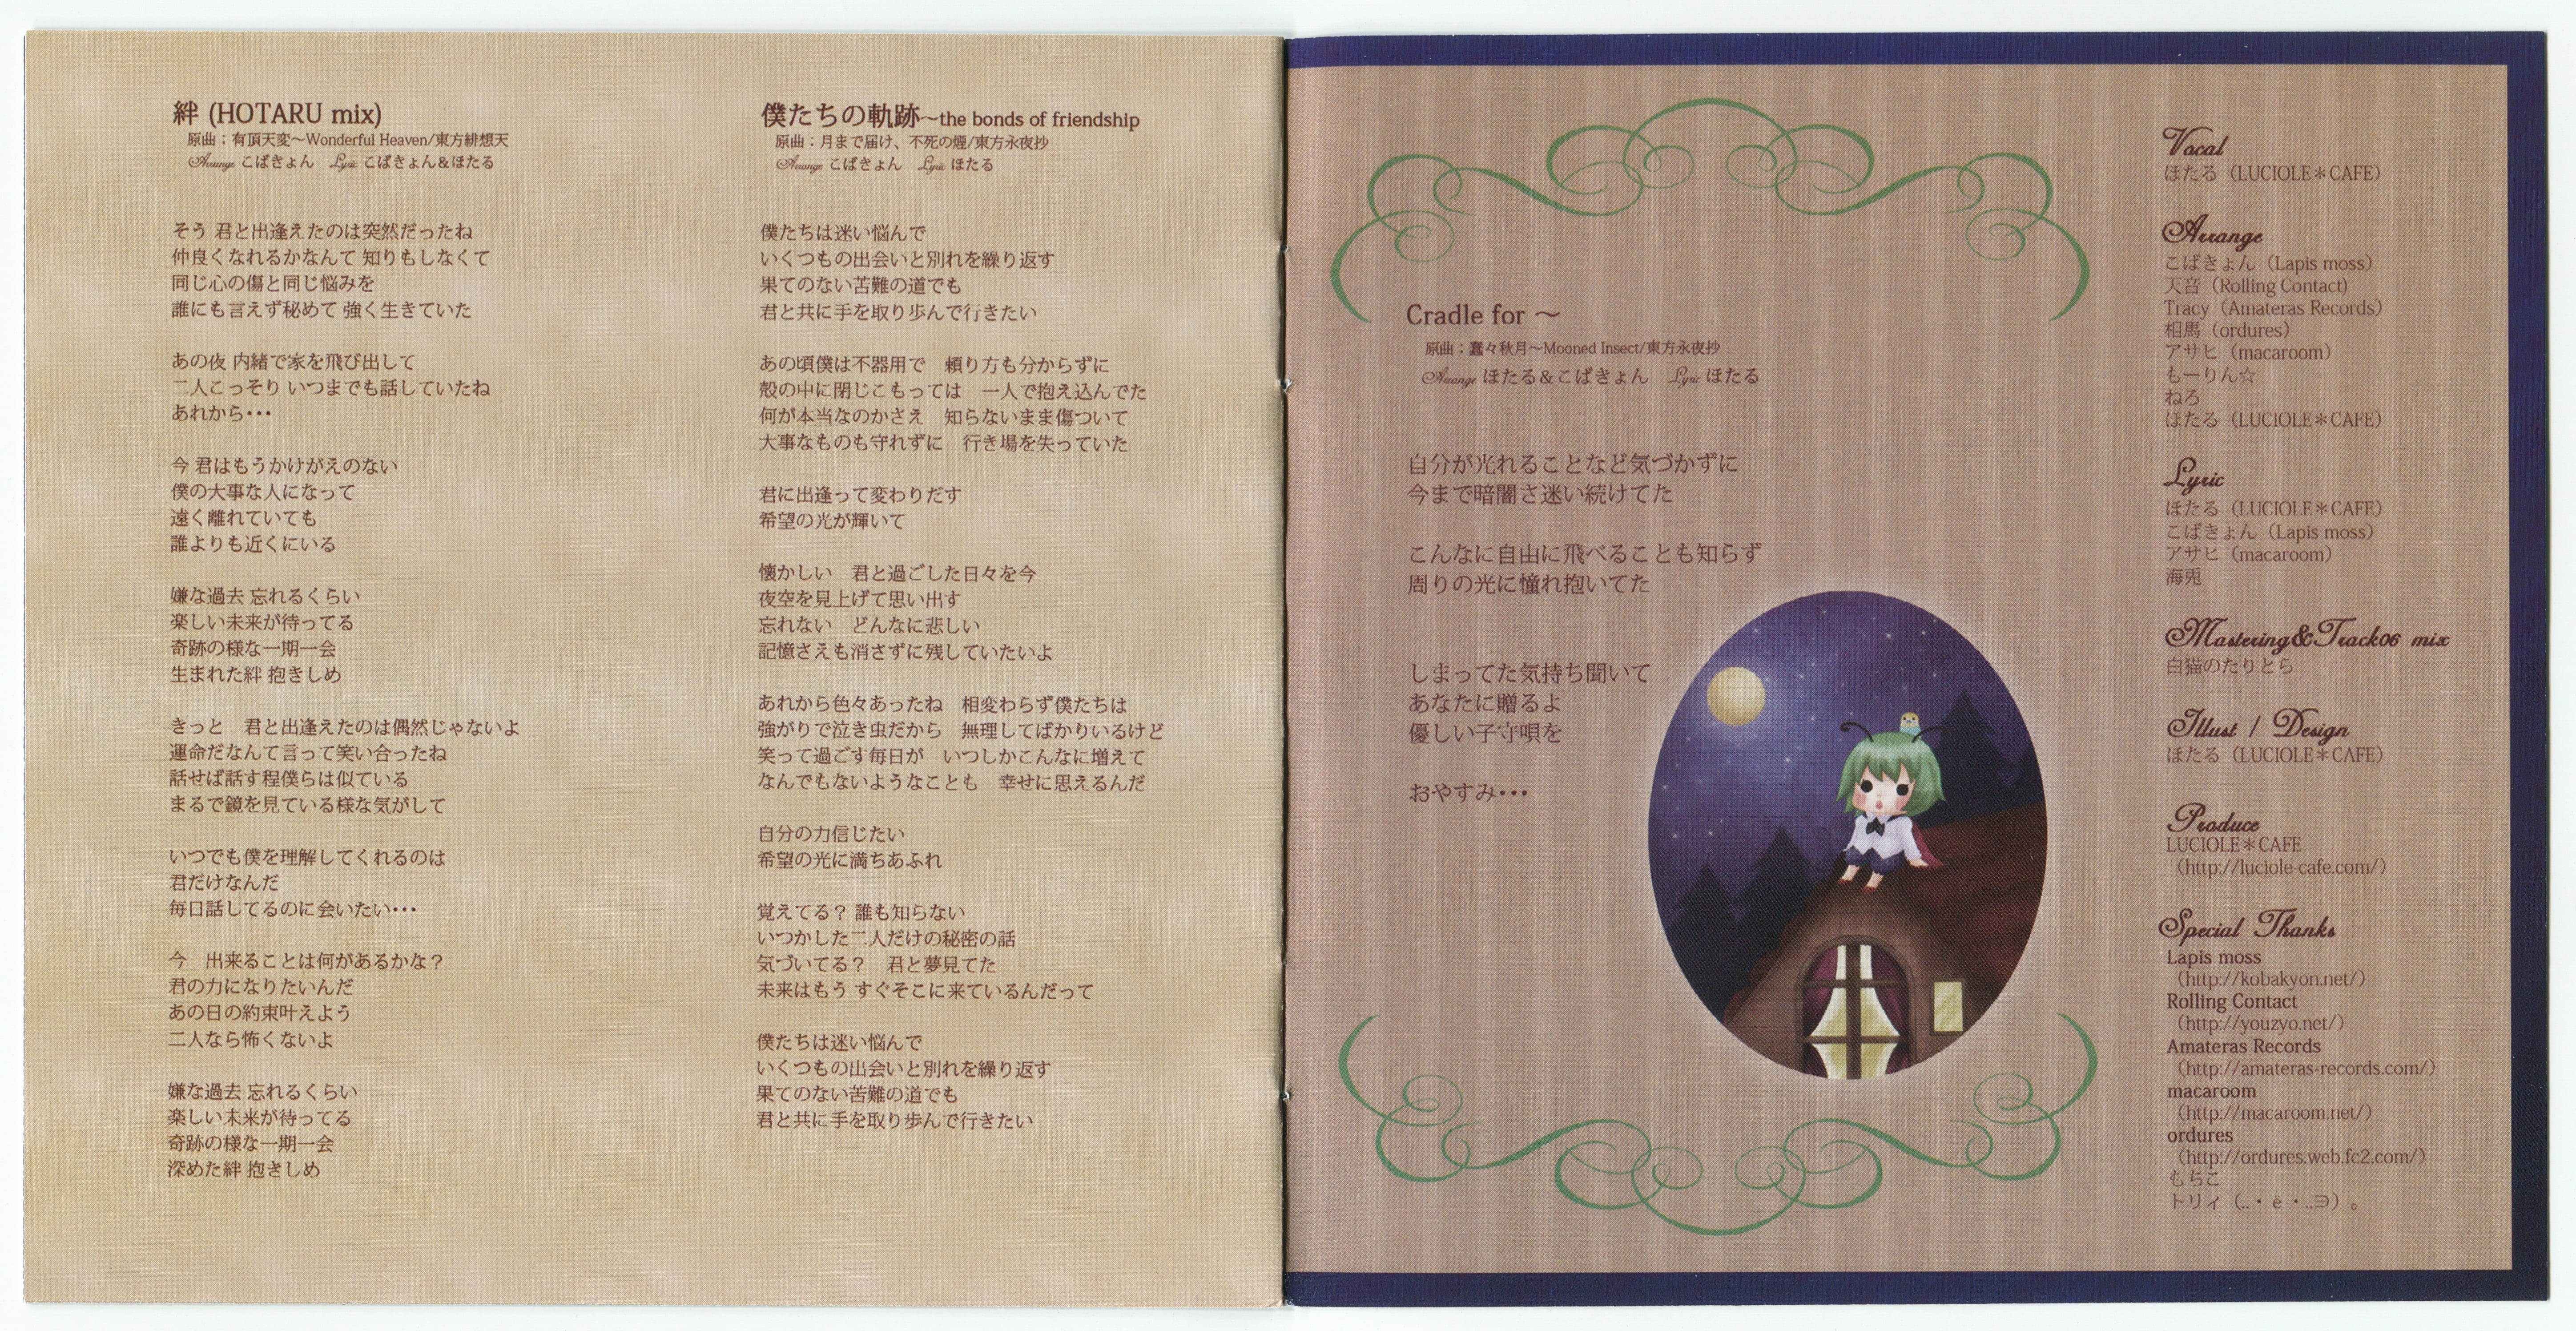 絆 (HOTARU mix)
原曲：有頂天変～Wonderful Heaven/東方緋想天
Arrange こばきょん　Lyric こばきょん＆ほたる
そう 君と出逢えたのは突然だったね
仲良くなれるかなんて 知りもしなくて
同じ心の傷と同じ悩みを
誰にも言えず秘めて 強く生きていた
あの夜 内緒で家を飛び出して
二人こっそり いつまでも話していたね
あれから・・・
今 君はもうかけがえのない
僕の大事な人になって
遠く離れていても
誰よりも近くにいる
嫌な過去 忘れるくらい
楽しい未来が待ってる
奇跡の様な一期一会
生まれた絆 抱きしめ
きっと　君と出逢えたのは偶然じゃないよ
運命だなんて言って笑い合ったね
話せば話す程僕らは似ている
まるで鏡を見ている様な気がして
いつでも僕を理解してくれるのは
君だけなんだ
毎日話してるのに会いたい・・・
今　出来ることは何があるかな？
君の力になりたいんだ
あの日の約束叶えよう
二人なら怖くないよ
嫌な過去 忘れるくらい
楽しい未来が待ってる
奇跡の様な一期一会
深めた絆 抱きしめ
僕たちの軌跡～the bonds of friendship
原曲：月まで届け、不死の煙/東方永夜抄
Arrange こばきょん　Lyric ほたる
僕たちは迷い悩んで
いくつもの出会いと別れを繰り返す
果てのない苦難の道でも
君と共に手を取り歩んで行きたい
あの頃僕は不器用で　頼り方も分からずに
殻の中に閉じこもっては　一人で抱え込んでた
何が本当なのかさえ　知らないまま傷ついて
大事なものも守れずに　行き場を失っていた
君に出逢って変わりだす
希望の光が輝いて
懐かしい　君と過ごした日々を今
夜空を見上げて思い出す
忘れない　どんなに悲しい
記憶さえも消さずに残していたいよ
あれから色々あったね　相変わらず僕たちは
強がりで泣き虫だから　無理してばかりいるけど
笑って過ごす毎日が　いつしかこんなに増えて
なんでもないようなことも　幸せに思えるんだ
自分の力信じたい
希望の光に満ちあふれ
覚えてる？ 誰も知らない
いつかした二人だけの秘密の話
気づいてる？　君と夢見てた
未来はもう すぐそこに来ているんだって
僕たちは迷い悩んで
いくつもの出会いと別れを繰り返す
果てのない苦難の道でも
君と共に手を取り歩んで行きたい
Cradle for ～
原曲：蠢々秋月～Mooned Insect/東方永夜抄
Arrange ほたる＆こばきょん　Lyric ほたる
自分が光れることなど気づかずに
今まで暗闇さ迷い続けてた
こんなに自由に飛べることも知らず
周りの光に憧れ抱いてた
しまってた気持ち聞いて
あなたに贈るよ
優しい子守唄を
おやすみ・・・
Vocal
ほたる（LUCIOLE＊CAFE）
Arrange
こばきょん（Lapis moss）
天音（Rolling Contact）
Tracy（Amateras Records）
相馬（ordures）
アサヒ（macaroom）
もーりん☆
ねろ
ほたる（LUCIOLE＊CAFE）
Lyric
ほたる（LUCIOLE＊CAFE）
こばきょん（Lapis moss）
アサヒ（macaroom）
海兎
Mastering&Track06 mix
白猫のたりとら
Illust / Design
ほたる（LUCIOLE＊CAFE）
Produce
LUCIOLE＊CAFE
（http://luciole-cafe.com/）
Special Thanks
Lapis moss
（http://kobakyon.net/）
Rolling Contact
（http://youzyo.net/）
Amateras Records
（http://amateras-records.com/）
macaroom
（http://macaroom.net/）
ordures
（http://ordures.web.fc2.com/）
もちこ
トリィ（..・ё・..∋）。